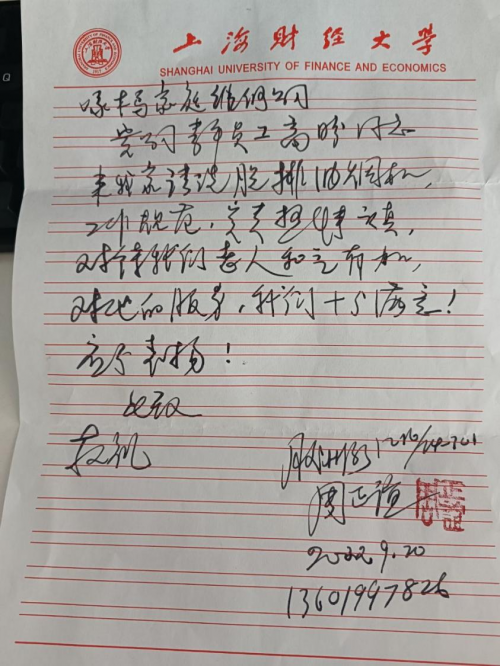 上海财经大学
SHANGHAI UNIVERSITY OF FINANCE AND ECONOMICS
啄木鸟家庭维修公司
贵司青年员工高 同志
来我家清洗脱排油烟机,
工作规范,负责热情认真,
对待我们老人和蔼有加,
对他的服务,我们十分满意!
应予表扬!
此致
敬礼
周正谊
2022.9.20
13601997826